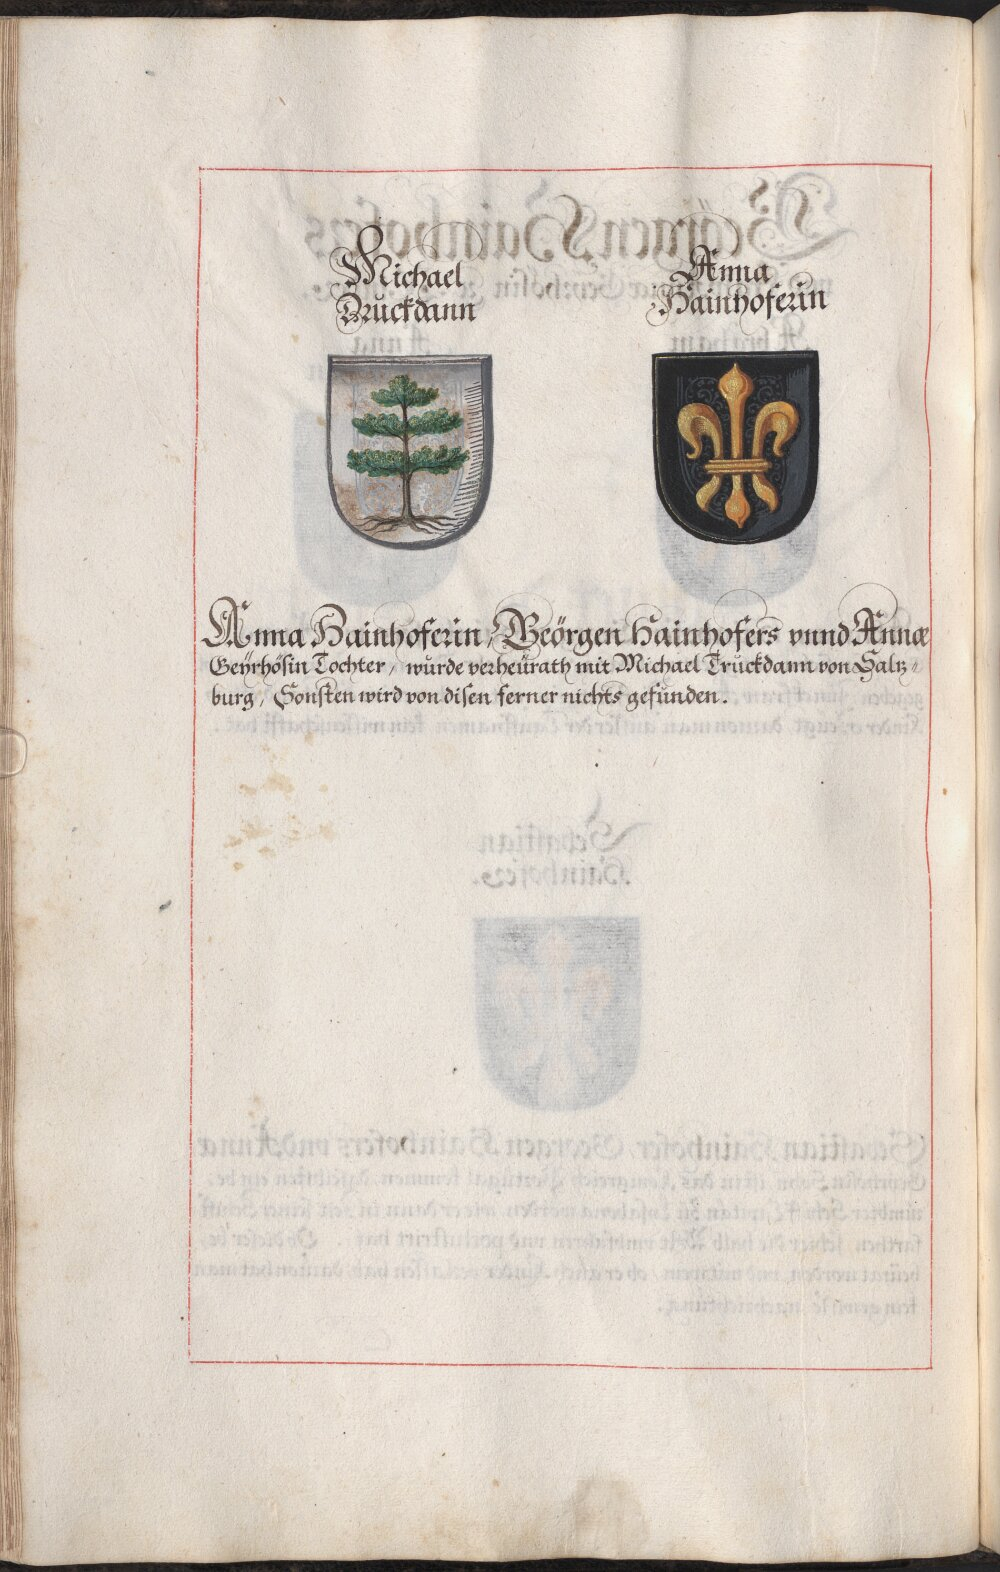 Michael
Truckdann
Anna
Hainhoferin
Anna Hainhoferin, Geörgen Hainhofers vnnd Annæ
Geyrhösin Tochter, wurde verheürath mit Michael Truckdann von Saltz-
burg, Sonsten wird von disen ferner nichts gefunden.